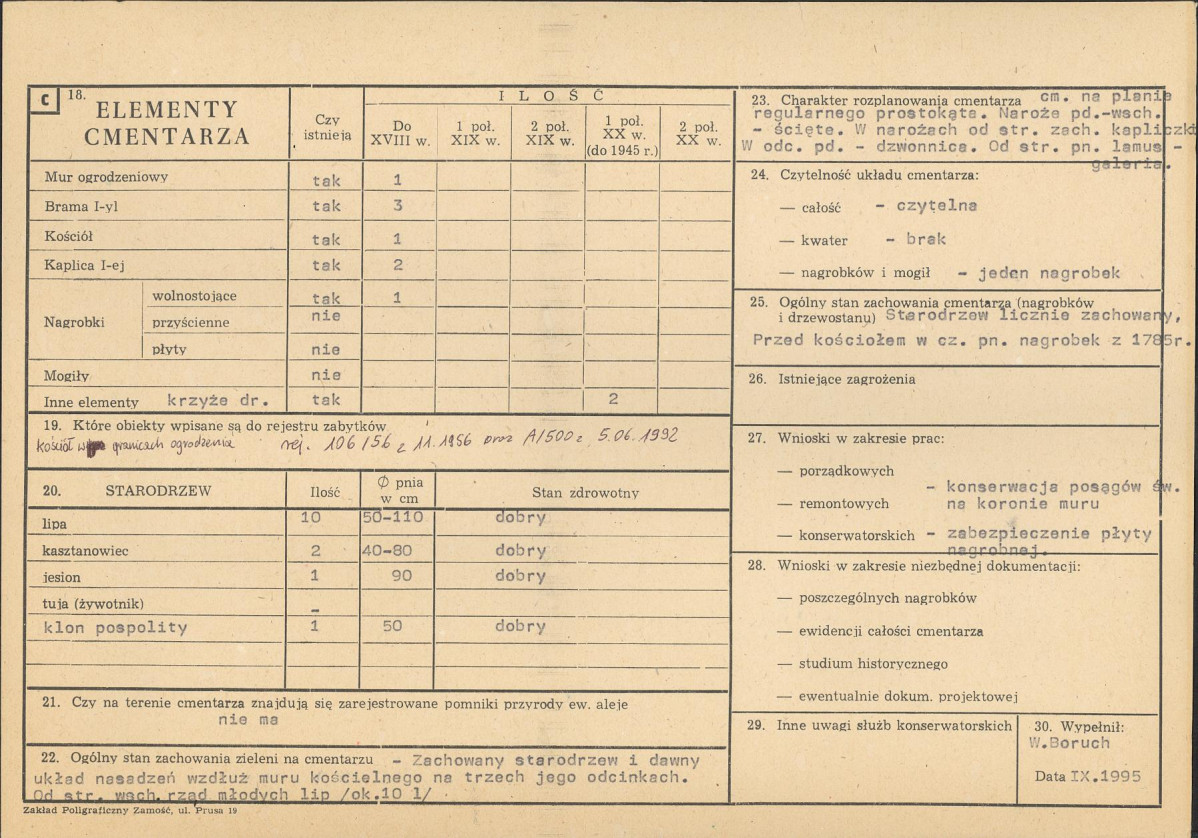 C 18. ELEMENTY CMENTARZA
Czy istnieją
I L O Ś Ć
Do XVIII w.
1 poł. XIX w.
2 poł. XIX w.
1 poł. XX w. (do 1945 r.)
2 poł. XX w.
Mur ogrodzeniowy tak 1
Brama I-yl tak 3
Kościół tak 1
Kaplica I-ej tak 2
Nagrobki
wolnostojące tak 1
przyścienne nie
płyty nie
Mogiły nie
Inne elementy krzyże dr. tak 2
19. Które obiekty wpisane są do rejestru zabytków
kościół w granicach ogrodzenia rej. 106/56 z 11.1956 oraz A/500 z 5.06.1992
20. STARODRZEW Ilość Ø pnia w cm Stan zdrowotny
lipa 10 50-110 dobry
kasztanowiec 2 40-80 dobry
jesion 1 90 dobry
tuja (żywotnik) -
klon pospolity 1 50 dobry
21. Czy na terenie cmentarza znajdują się zarejestrowane pomniki przyrody ew. aleje
nie ma
22. Ogólny stan zachowania zieleni na cmentarzu - Zachowany starodrzew i dawny
układ nasadzeń wzdłuż muru kościelnego na trzech jego odcinkach.
Od str. wsch. rząd młodych lip /ok.10 l/
Zakład Poligraficzny Zamość, ul. Prusa 19
23. Charakter rozplanowania cmentarza cm. na planie
regularnego prostokąta. Naroże pd.-wsch.
- ścięte. W narożach od str. zach. kapliczki
W odc. pd. - dzwonnica. Od str. pn. lamus -
galeria.
24. Czytelność układu cmentarza:
— całość - czytelna
— kwater - brak
— nagrobków i mogił - jeden nagrobek
25. Ogólny stan zachowania cmentarza (nagrobków
i drzewostanu) Starodrzew licznie zachowany,
Przed kościołem w cz. pn. nagrobek z 1785r.
26. Istniejące zagrożenia
27. Wnioski w zakresie prac:
— porządkowych
- konserwacja posągów św.
— remontowych na koronie muru
— konserwatorskich - zabezpieczenie płyty
nagrobnej.
28. Wnioski w zakresie niezbędnej dokumentacji:
— poszczególnych nagrobków
— ewidencji całości cmentarza
— studium historycznego
— ewentualnie dokum. projektowej
29. Inne uwagi służb konserwatorskich
30. Wypełnił:
W.Boruch
Data IX.1995